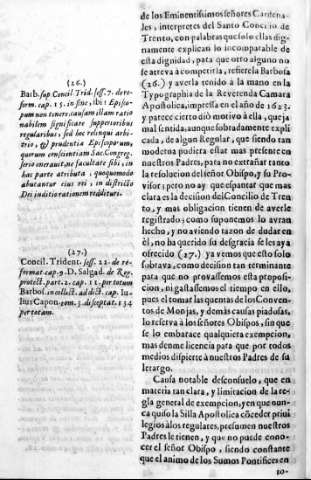 de los Eminentissimos señores Cardena-
les, interpretes del Santo Concilio de
Trento, con palabras que solo ellas dig-
namente explican lo incomparable de
esta dignidad, para que otro alguno no
se atreva à competirla, refierela Barbosa
(26.) y averla tenido à la mano en la
Typographia de la Reverenda Camara
Apostolica, impressa en el año de 1623.
y parece cierto diò motivo à ella, queja
mal sentida, aunque sobradamente expli
cada, de algun Regular, que siendo tan
moderna pudiera estar mas presente en
nuestros Padres, para no extrañar tanto
la resolucion del señor Obispo, y su Pro-
visor; pero no ay que espantar que mas
clara es la decision del Concilio de Tren
to, y mas obligacion tienen de averle
registrado; como suponemos lo avran
hecho, y no aviendo razon de dudar en
èl, no ha querido su desgracia se les aya
ofrecido (27.) ya vemos que esto solo
sobrava, como decision tan terminante
para que no provassemos esta proposi-
cion, ni gastassemos el tiempo en ello,
pues el tomar las quentas de los Conven-
tos de Monjas, y demàs causas piadosas,
lo reserva à los señores Obispos, sin que
se lo embarace qualquiera exempcion,
mas denme licencia para que por todos
medios dispierte à nuestros Padres de su
letargo.
Causa notable desconsuelo, que en
materia tan clara, y limitacion de la re-
gla general de exempcion, en que nun-
ca quiso la Silla Apostolica côceder privi
legios à los regulares, presumen nuestros
Padres le tienen, y que no puede cono-
cer el señor Obispo, siendo constante
que el animo de los Sumos Pontifices en
to-
(26.)
Barb. sup Concil. Trid. sess. 7. de re-
form. cap. 15. in fine, ibi: Episco-
pum non tenere, causam illam ratio
nabilem significare superioribus
regularibus, sed hoc relinqui arbi-
trio, & prudentia Episcoporum,
quorum conscientiam Sac. Congreg.
serio onerauit, ne facultate sibi, in
hac parte atributa, quoquomodo
abutantur eius rei, in districto
Dei inditio rationem reddituri.
(27.)
Concil. Trident. sess. 22. de re-
format cap. 9. D. Salgad. de Reg.
protect. part. 2. cap. 12. per totum
Barbos. in collect. ad dict. cap. Iu-
lius Capon. tom. 3. disceptat. 134
per totam.